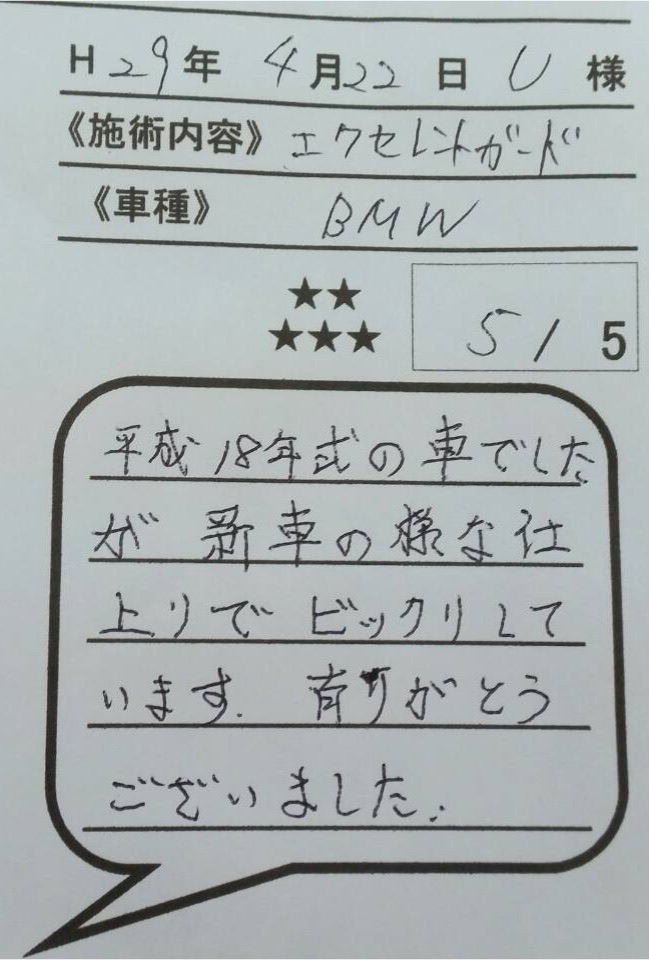 H29年 4月22日 U 様
《施術内容》エクセレントガード
《車種》 BMW
★★
★★★
5/5
平成18年式の車でした
が 新車の様な仕
上りで ビックリして
います. 有りがとう
ございました.